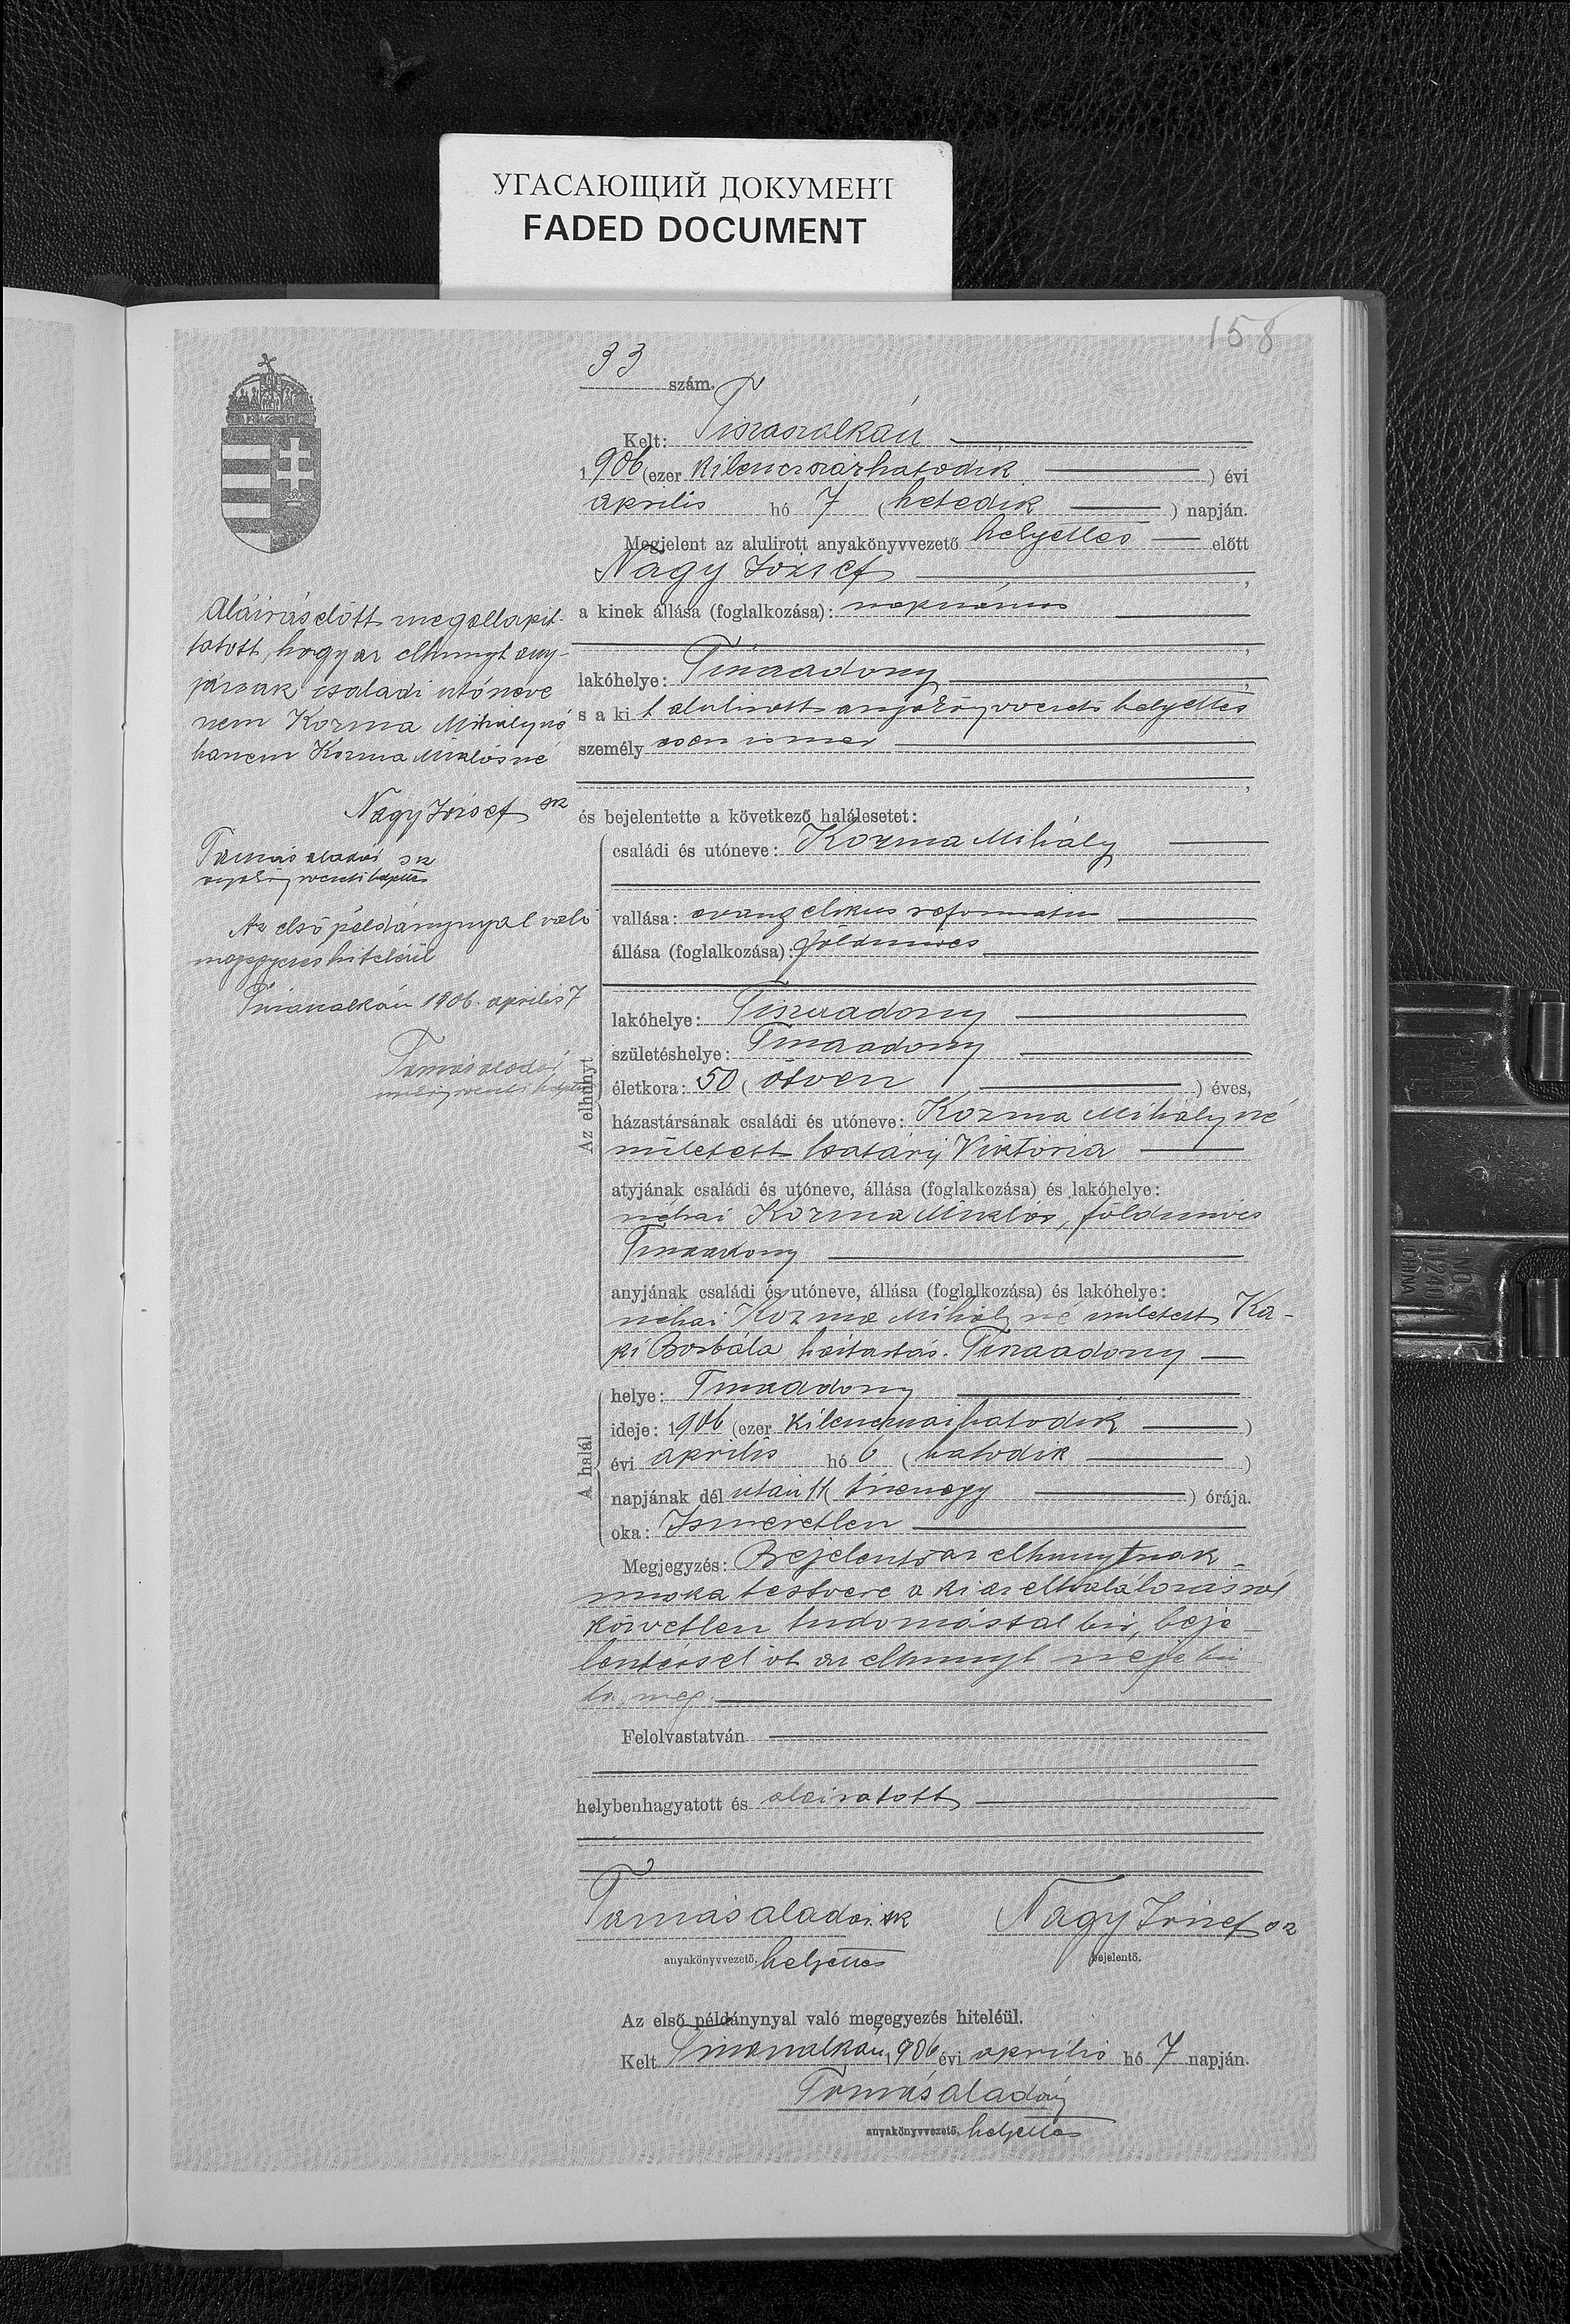 УГАСАЮЩИЙ ДОКУМЕНТ
FADED DOCUMENT
158
33 szám.
Kelt: Tiszaszalkán
1906 (ezer kilenczszázhatodik) évi
április hó 7 (hetedik) napján.
Megjelent az alulirott anyakönyvvezető helyettes előtt
Nagy József,
a kinek állása (foglalkozása): napszámos
,
lakóhelye: Tiszaadony,
s a kit alulirott anyakönyvvezető helyettes
személyesen ismer
,
és bejelentette a következő halálesetet:
Az elhunyt
családi és utóneve: Kozma Mihály
vallása: evangelikus református
állása (foglalkozása): földmives
lakóhelye: Tiszaadony
születéshelye: Tiszaadony
életkora: 50 (ötven) éves,
házastársának családi és utóneve: Kozma Mihályné
született Csatáry Viktória
atyjának családi és utóneve, állása (foglalkozása) és lakóhelye:
néhai Kozma Miklós, földmives
Tiszaadony
anyjának családi és utóneve, állása (foglalkozása) és lakóhelye:
néhai Kozma Mihályné született Ka-
pi Borbála, háztartás. Tiszaadony
A halál
helye: Tiszaadony
ideje: 1906 (ezer kilenczszázhatodik)
évi április hó 6 (hatodik)
napjának dél után 11 (tizenegy) órája.
oka: Ismeretlen
Megjegyzés: Bejelentő az elhunytnak
testvére a ki az elhalálozásról
közvetlen tudomással bir, beje-
lentéssel őt az elhunyt neje biz-
ta meg.
Felolvastatván
helybenhagyatott és aláiratott
Tamás Aladár sk
anyakönyvvezető. helyettes
Nagy József sk
bejelentő.
Az első példánynyal való megegyezés hiteléül.
Kelt Tiszaszalkán, 1906 évi április hó 7 napján.
Tamás Aladár
anyakönyvvezető. helyettes
Aláirás előtt megállapit-
tatott, hogy az elhunyt any-
jának családi utóneve
nem Kozma Mihályné
hanem Kozma Miklósné
Nagy József sk
Tamás Aladár sk
anyakönyvvezető helyettes
Az első példánynyal való
megegyezés hiteléül
Tiszaszalkán 1906. április 7
Tamás Aladár
anyakönyvvezető helyettes